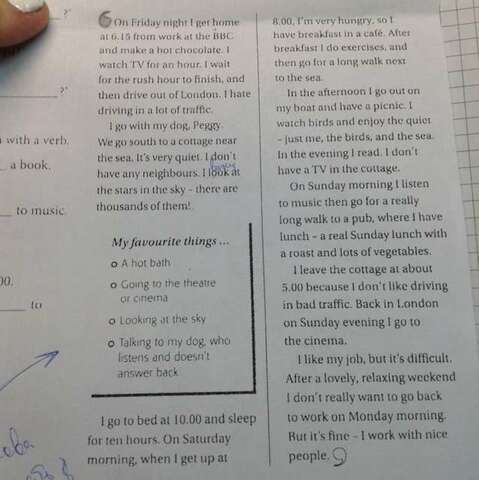 ?'
?'
with a verb.
a book.
to music.
00.
to
6 On Friday night I get home
at 6.15 from work at the BBC
and make a hot chocolate. I
watch TV for an hour. I wait
for the rush hour to finish, and
then drive out of London. I hate
driving in a lot of traffic.
I go with my dog, Peggy.
We go south to a cottage near
the sea. It's very quiet. I don't
have any neighbours. I look at
the stars in the sky – there are
thousands of them!
My favourite things ...
A hot bath
Going to the theatre
or cinema
Looking at the sky
Talking to my dog, who
listens and doesn't
answer back
I go to bed at 10.00 and sleep
for ten hours. On Saturday
morning, when I get up at
8.00, I'm very hungry, so I
have breakfast in a café. After
breakfast I do exercises, and
then go for a long walk next
to the sea.
In the afternoon I go out on
my boat and have a picnic. I
watch birds and enjoy the quiet
– just me, the birds, and the sea.
In the evening I read. I don't
have a TV in the cottage.
On Sunday morning I listen
to music then go for a really
long walk to a pub, where I have
lunch – a real Sunday lunch with
a roast and lots of vegetables.
I leave the cottage at about
5.00 because I don't like driving
in bad traffic. Back in London
on Sunday evening I go to
the cinema.
I like my job, but it's difficult.
After a lovely, relaxing weekend
I don't really want to go back
to work on Monday morning.
But it's fine – I work with nice
people. 9